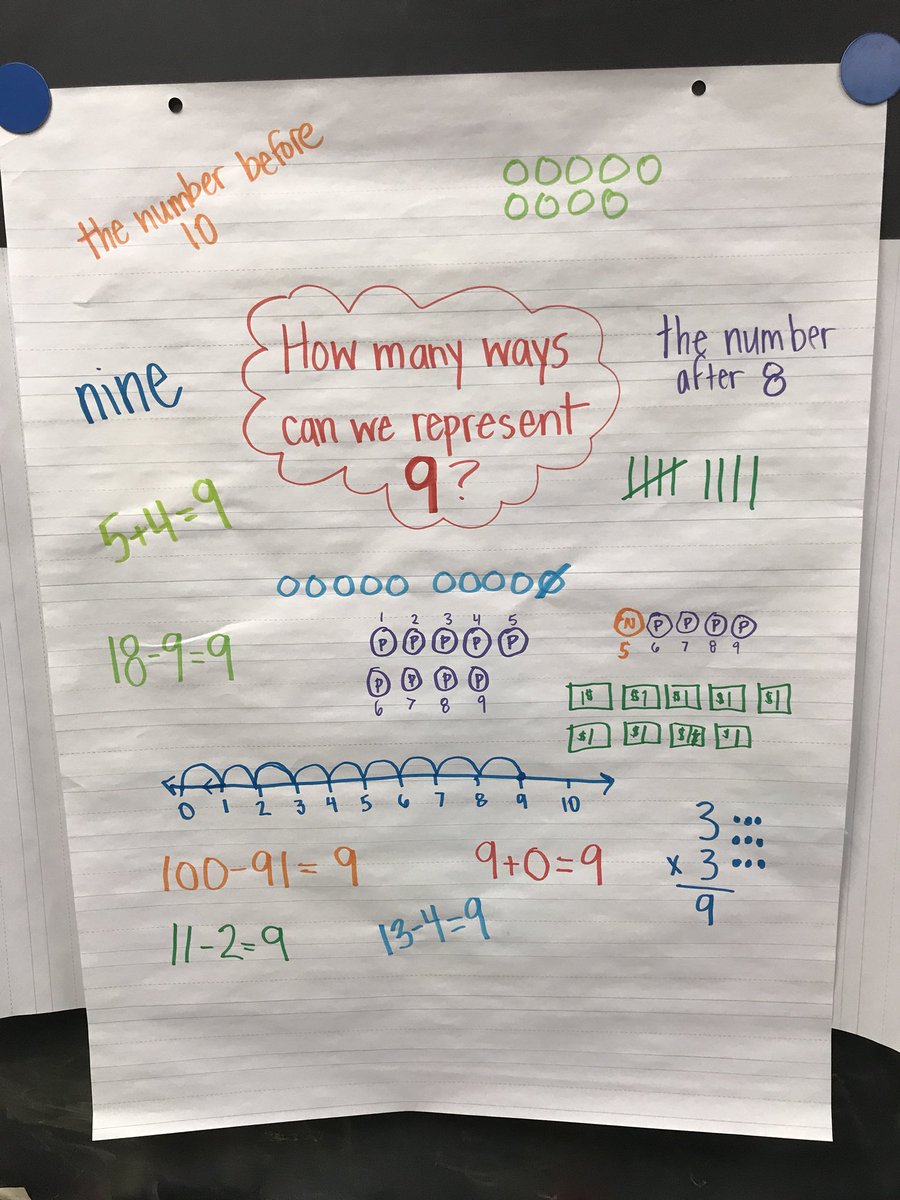 the number before
10
How many ways
can we represent
9?
the number
after 8
nine
5+4=9
18-9=9
1 2 3 4 5
P P P P P
P P P P
6 7 8 9
N P P P P
5 6 7 8 9
1$ $1 $1 $1 $1
$1 $1 $1 $1
0 1 2 3 4 5 6 7 8 9 10
100-91=9
9+0=9
3
x 3
9
11-2=9
13-4=9